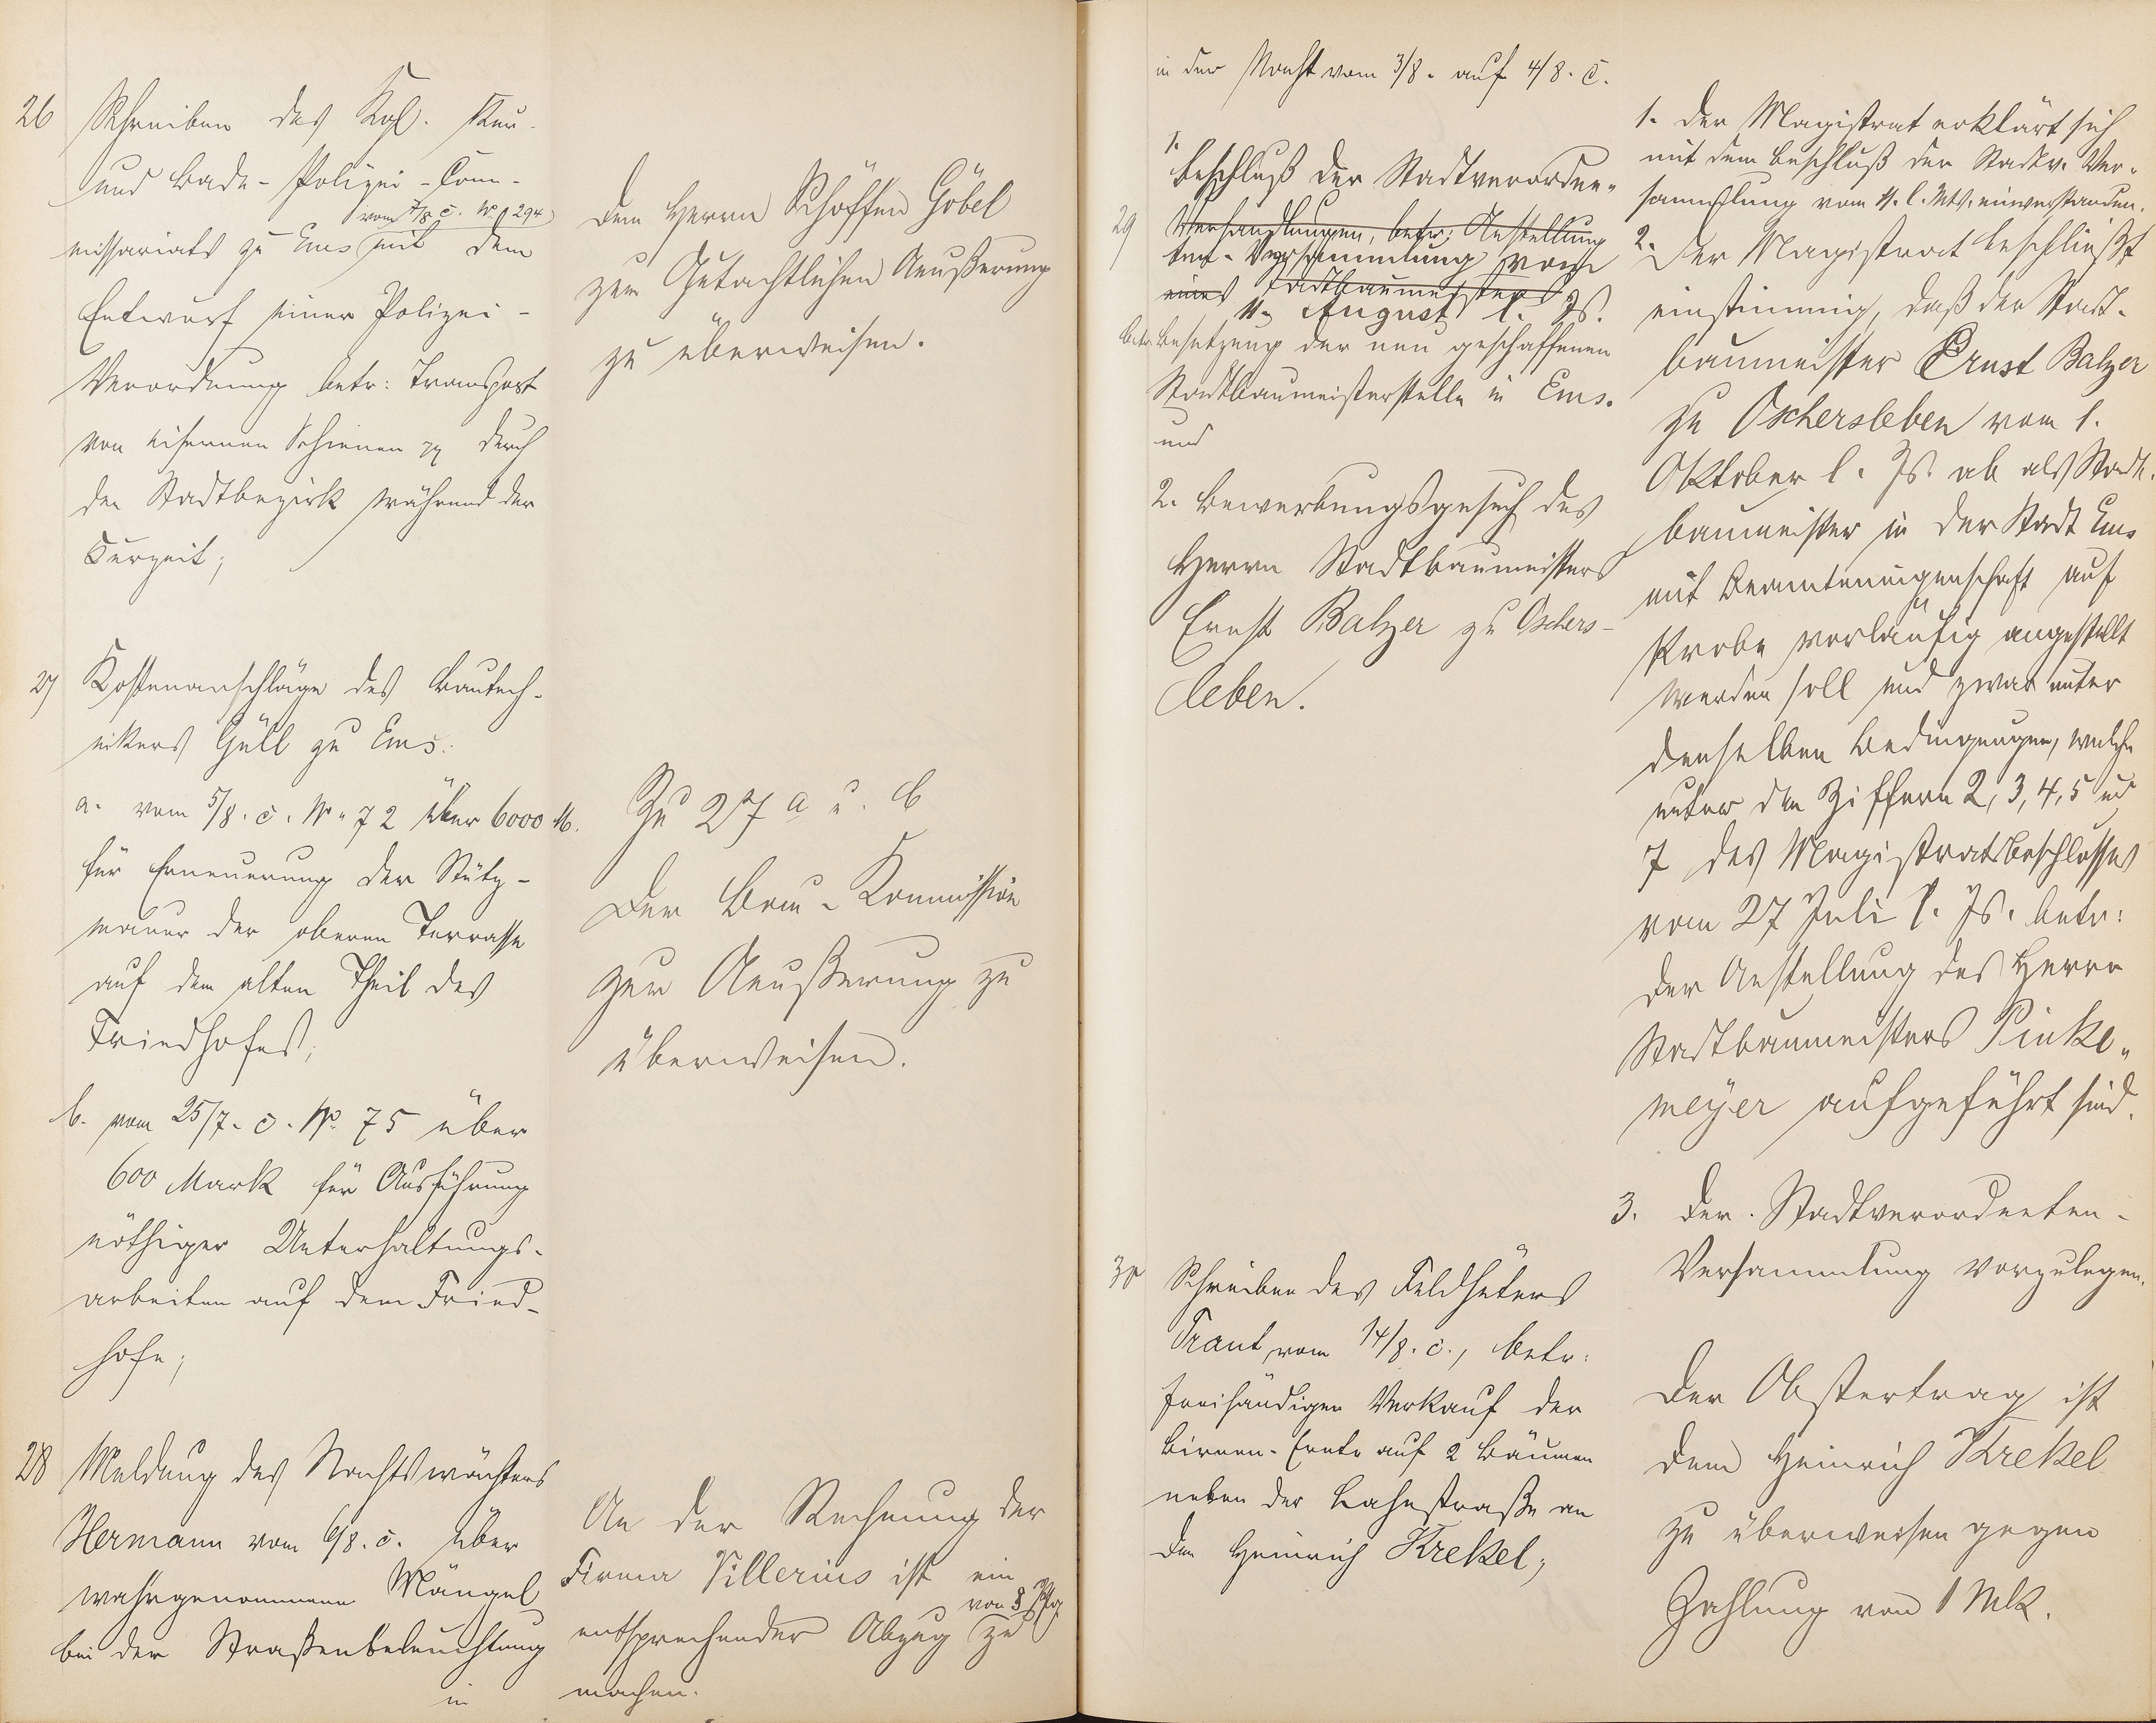 26 Schreiben des Kgl. Kur-
und Bade-Polizei-Com-
missariats zu Ems vom 7/8 c. No 294 mit dem
Entwurf einer Polizei-
Verordnung betr: Transport
von eisernen Schienen pp durch
den Stadtbezirk während der
Curzeit;
Dem Herrn Schöffen Göbel
zur Gutachtlichen Aeußerung
zu überweisen.
27 Kostenanschläge des Bautech-
nikers Güll zu Ems.
a. vom 5/8. c. No. 72 über 6000 M.
für Erneuerung der Stütz-
mauer der oberen Terrasse
auf dem alten Theil des
Friedhofes;
b. vom 25/7. c. No. 75 über
600 Mark für Ausführung
nöthiger Unterhaltungs-
arbeiten auf dem Fried-
hofe;
Zu 27 a u. b
Der Bau-Kommission
zur Aeußerung zu
überweisen.
28 Meldung des Nachtswächters
Hermann vom 6/8. c. über
wahrgenommene Mängel
bei der Straßenbeleuchtung
in
An der Rechnung der
Firma Villerius ist ein
entsprechender Abzug von 8 Pfg zu
machen.
in der Nacht vom 3/8. auf 4/8. c.
1. Beschluß der Stadtverordne-
29 Verhandlungen, betr: Anstellung
ten-Versammlung vom
eines Stadtbaumeisters
11. August l. Js.
betr. Besetzung der neu geschaffenen
Stadtbaumeisterstelle in Ems.
und
2. Bewerbungsgesuch des
Herrn Stadtbaumeisters
Ernst Balzer zu Oschers-
leben.
1. Der Magistrat erklärt sich
mit dem Beschluß der Stadtv. Ver-
sammlung vom 11. l. Mts. einverstanden.
2. Der Magistrat beschließt
einstimmig, daß der Stadt-
baumeister Ernst Balzer
zu Oschersleben vom 1.
Oktober l. Js. ab als Stadt-
baumeister in der Stadt Ems
mit Beamteneigenschaft auf
Probe vorläufig angestellt
werden soll und zwar unter
denselben Bedingungen, welche
unter den Ziffern 2, 3, 4, 5 und
7 des Magistratsbeschlusses
vom 27 Juli l. Js. betr:
der Anstellung des Herrn
Stadtbaumeisters Pinke-
meyer aufgeführt sind.
3. Der Stadtverordneten-
Versammlung vorzulegen.
30 Schreiben des Feldhüters
Traut vom 14/8. c., betr:
freihändigen Verkauf der
Birnen-Ernte auf 2 Bäumen
neben der Lahnstraße an
den Heinrich Krekel;
Der Obstertrag ist
dem Heinrich Krekel
zu überweisen gegen
Zahlung von 1 Mk.